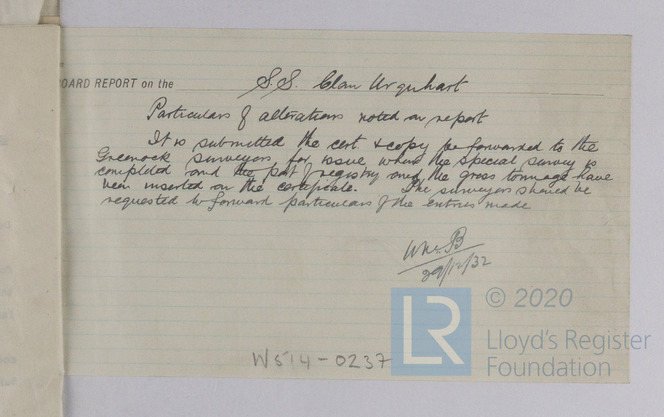 OARD REPORT on the S.S. Clan Urquhart
Particulars of alterations noted on report
It is submitted the cert & copy be forwarded to the
Greenock surveyors, for issue when the special survey is
completed and the port of registry and the gross tonnage have
been inserted on the certificate. The surveyors should be
requested to forward particulars of the entries made
29/12/32
W514-0237
LR
© 2020
Lloyd's Register
Foundation